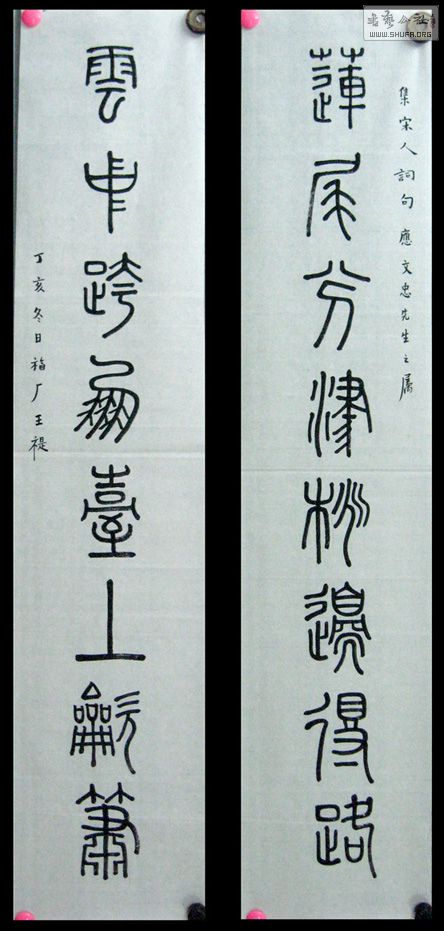 集宋人詞句應文忠先生之屬
蓮尾分津桃邊得路
雲中跨鳳臺上龡簫
丁亥冬日福厂王禔
書藝公社
WWW.SHUFA.ORG